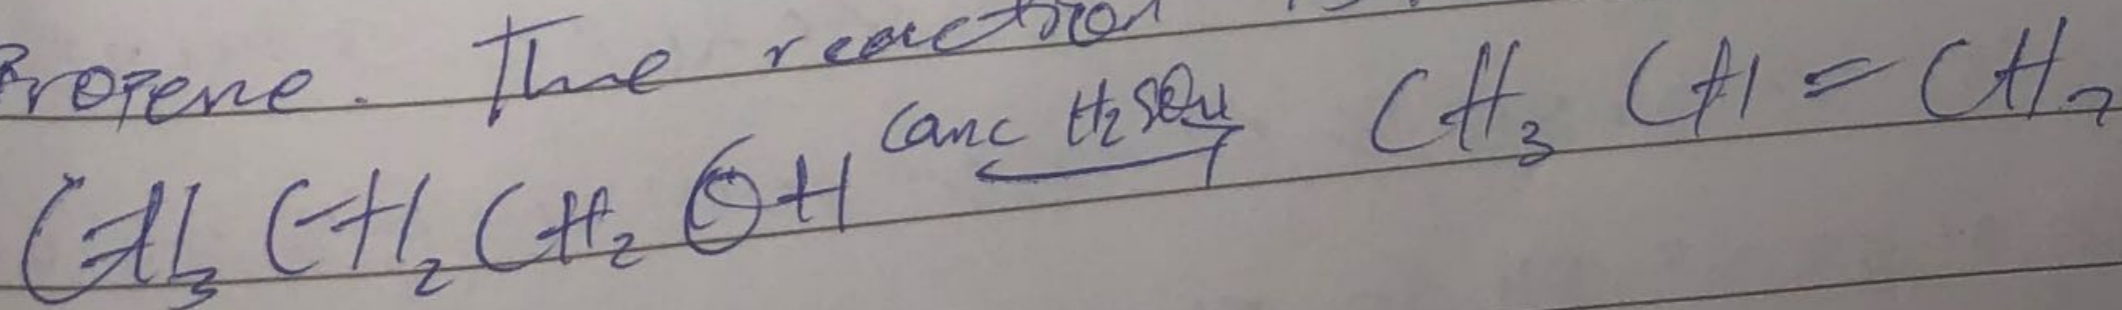 Propene. The reaction is:
CH₃ CH₂ CH₂ OH conc H₂SO₄ → CH₃ CH = CH₂